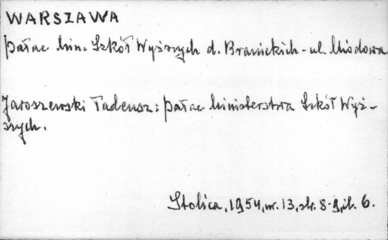 WARSZAWA
pałac Min. Szkół Wyższych d. Branickich - ul. Miodowa
Jaroszewski Tadeusz: pałac Ministerstwa Szkół Wyż-
szych.
Stolica, 1954, nr. 13, str. 8-9, il. 6.